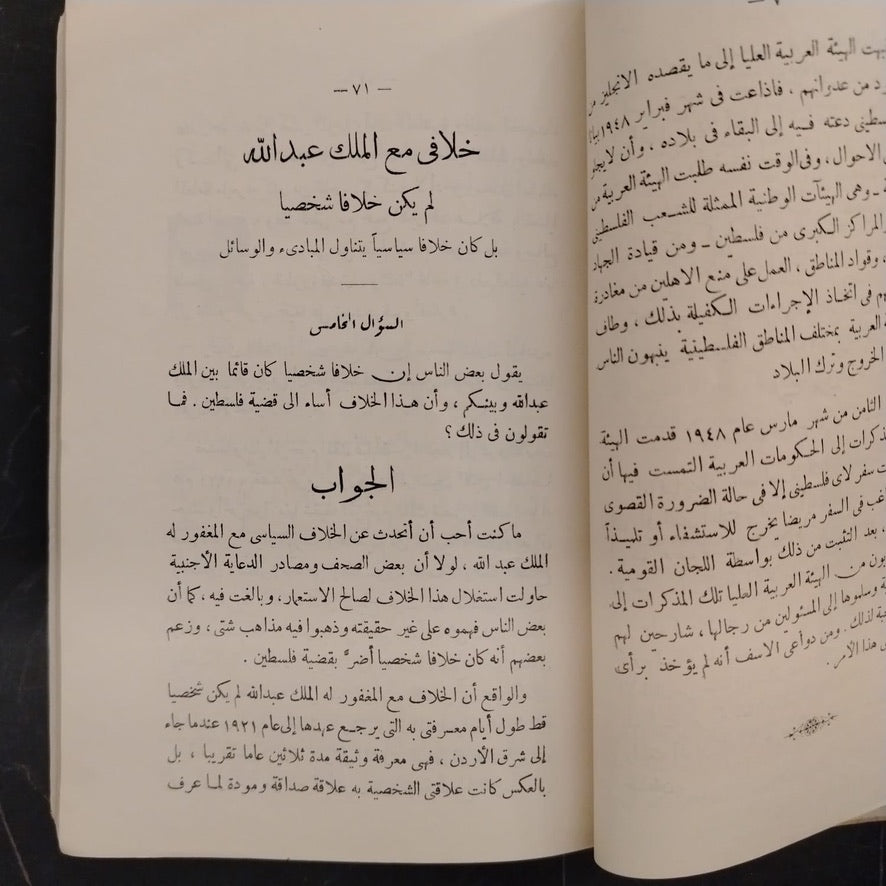 ـ ٧
الهيئة العربية العليا إلى ما يقصده الانجليز من
من عدوانهم ، فاذاعت فى شهر فبراير ١٩٤٨
دعته فيه إلى البقاء فى بلاده ، وأن
الاحوال ، وفى الوقت نفسه طلبت الهيئة العربية من
ـ وهى الهيئات الوطنية الممثلة للشعب الفلسطينى
والمراكز الكبرى من فلسطين ـ ومن قيادة الجهاد
، وقواد المناطق ، العمل على منع الاهلين من مغادرة
فى اتخاذ الإجراءات الكفيلة بذلك ، وطاف
العربية بمختلف المناطق الفلسطينية ينبهون الناس
الخروج وترك البلاد
الثامن من شهر مارس عام ١٩٤٨ قدمت الهيئة
إلى الحكومات العربية التمست فيها أن
سفر لاى فلسطينى إلا فى حالة الضرورة القصوى
فى السفر مريضا يخرج للاستشفاء أو تلميذاً
، بعد التثبت من ذلك بواسطة اللجان القومية .
من الهيئة العربية العليا تلك المذكرات إلى
وسلموها إلى المسئولين من رجالها ، شارحين لهم
لذلك . ومن دواعى الاسف أنه لم يؤخذ برأى
هذا الأمر .
— ٧١ —
خلافى مع الملك عبد الله
لم يكن خلافا شخصيا
بل كان خلافا سياسياً يتناول المبادىء والوسائل
السؤال الخامس
يقول بعض الناس إن خلافا شخصيا كان قائما بين الملك
عبدالله وبينكم ، وأن هذا الخلاف أساء الى قضية فلسطين . فما
تقولون فى ذلك ؟
الجواب
ما كنت أحب أن أتحدث عن الخلاف السياسى مع المغفور له
الملك عبد الله ، لولا أن بعض الصحف ومصادر الدعاية الأجنبية
حاولت استغلال هذا الخلاف لصالح الاستعمار، وبالغت فيه ، كما أن
بعض الناس فهموه على غير حقيقته وذهبوا فيه مذاهب شتى ، وزعم
بعضهم أنه كان خلافا شخصيا أضرَّ بقضية فلسطين .
والواقع أن الخلاف مع المغفور له الملك عبدالله لم يكن شخصيا
قط طول أيام معرفتى به التى يرجع عهدها إلى عام ١٩٢١ عندما جاء
إلى شرق الأردن ، فهى معرفة وثيقة مدة ثلاثين عاما تقريبا ، بل
بالعكس كانت علاقتى الشخصية به علاقة صداقة ومودة لما عرف